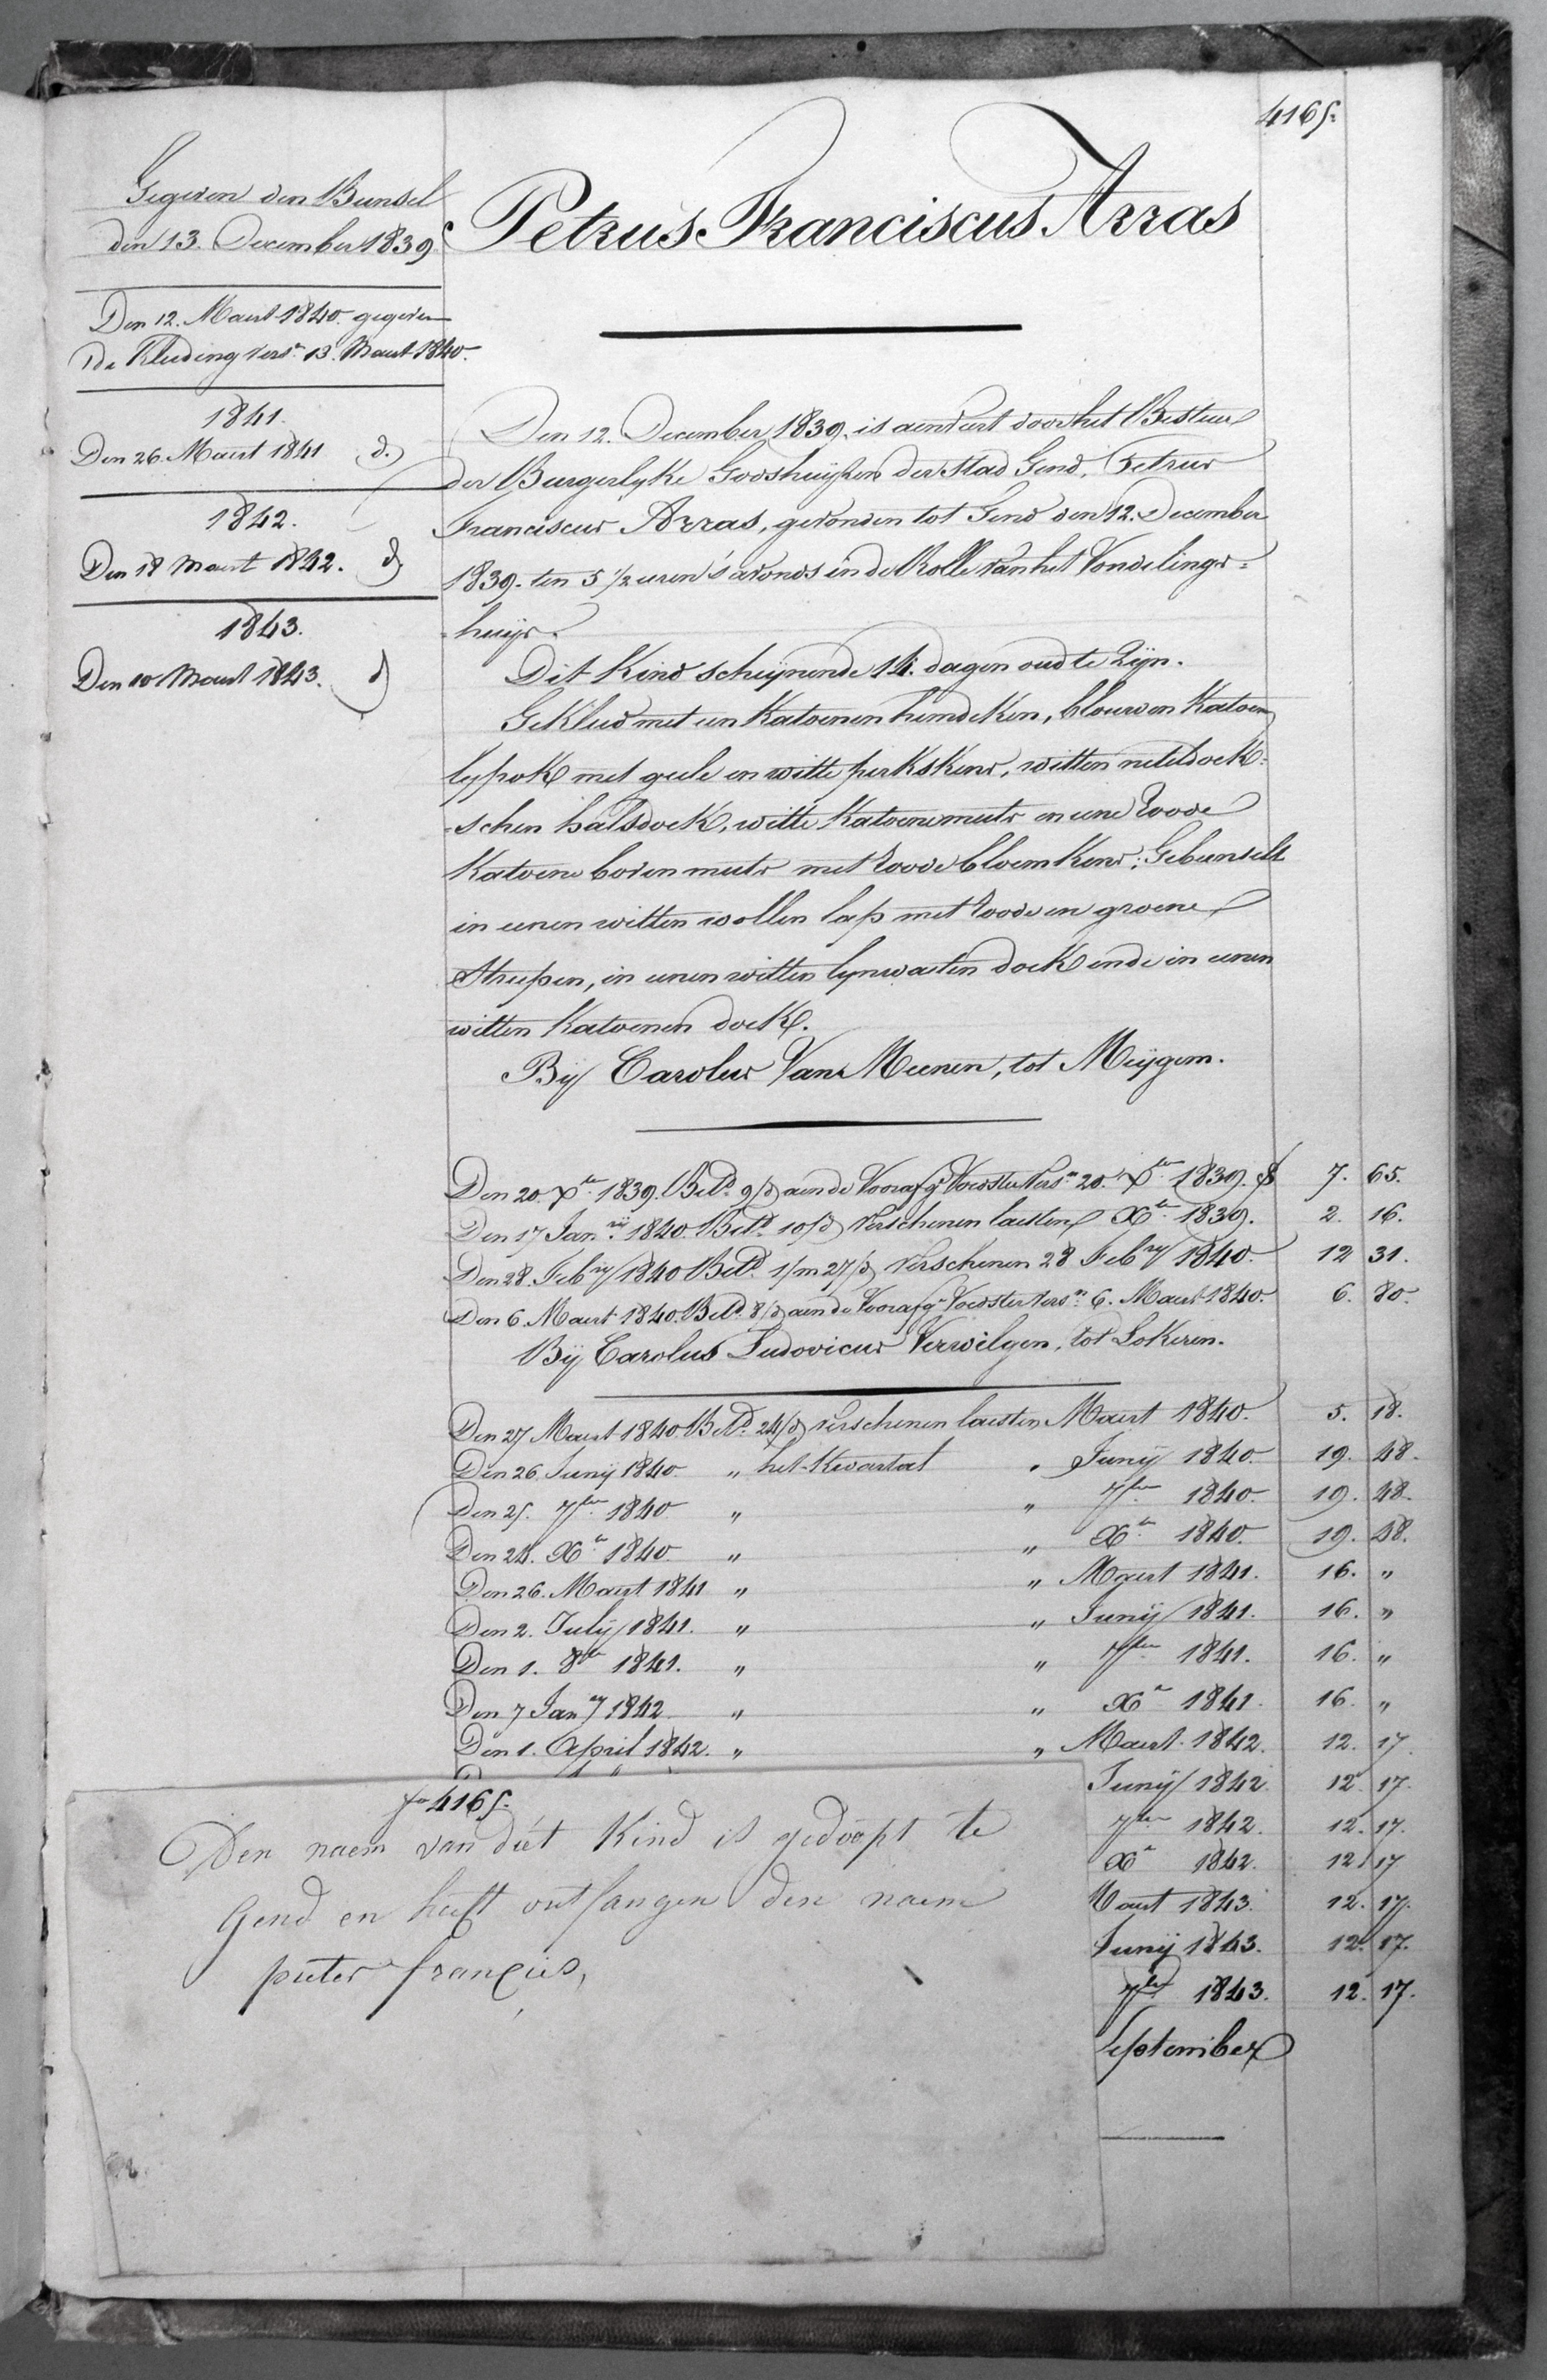 4165.
Gegeven den Bunsel
den 13. December 1839
Den 12. Maert 1840. gegeven
de Kleeding vers.n 13. Maert 1840.
1841.
Den 26. Maert 1841 d.
1842.
Den 18 Maert 1842. d.
1843.
Den 10 Maert 1843. d
Petrus Franciscus Arras
Den 12. December 1839. is aenveert door het Bestuer
der Burgerlyke Godshuijzen der Stad Gend, Petrus
Franciscus Arras, gevonden tot Gend den 12. December
1839. ten 5 1/2 uren s'avonds in de Rolle van het Vondelings=
=huijs.
Dit Kind schijnende 14. dagen oud te Zijn.
Gekleed met een Katoenen hemdeken, blauwen Katoen
lijfrok met geele en witte perkskens, witten neteldoek=
=schen halsdoek, witte Katoenemuts en eene roode
Katoene bovenmuts met roode bloemkens; Gebunselt
in eenen witten wollen lap met roode en groene
Streepen, in eenen witten lynwaeten doek ende in eenen
witten Katoenen doek.
Bij Carolus Van Meenen, tot Meijgem.
Den 20. Xber 1839. Betd. 9/d aen de Voorafg. Voedster Versn. 20. Xber 1839. 7. 65.
Den 17 Janrij 1840. Betd. 10/d Verschenen laesten Xber 1839. 2. 16.
Den 28. Febry 1840 Betd. 1/m 27/d Verschenen 28 Febry 1840. 12 31.
Den 6. Maert 1840. Betd. 8/d aen de Voorafg. Voedster Versn. 6. Maert 1840. 6. 80.
Bij Carolus Ludovicus Verwilgen, tot Lokeren.
Den 27 Maert 1840 Betd. 24/d verschenen laesten Maert 1840. 5. 18.
Den 26 Junij 1840. " het Kwartael " Junij 1840. 19. 48.
Den 25. 7ber 1840 " " 7ber 1840. 19. 48.
Den 24. Xber 1840. " " Xber 1840. 19. 48.
Den 26. Maert 1841 " " Maert 1841. 16. "
Den 2. July 1841. " " Junij 1841. 16. "
Den 1. 8ber 1841. " " 7ber 1841. 16. "
Den 7 Jany 1842 " " Xr 1841. 16. "
Den 1. April 1842. " " Maert 1842. 12. 17.
Junij 1842 12. 17.
7ber 1842. 12. 17.
Xr 1842. 12. 17
Maert 1843. 12. 17.
Junij 1843. 12. 17.
7ber 1843. 12. 17.
September
fo 4165.
Den naem van diét Kind is gedoopt te
Gend en heeft ontfangen den naem
pieter françies,